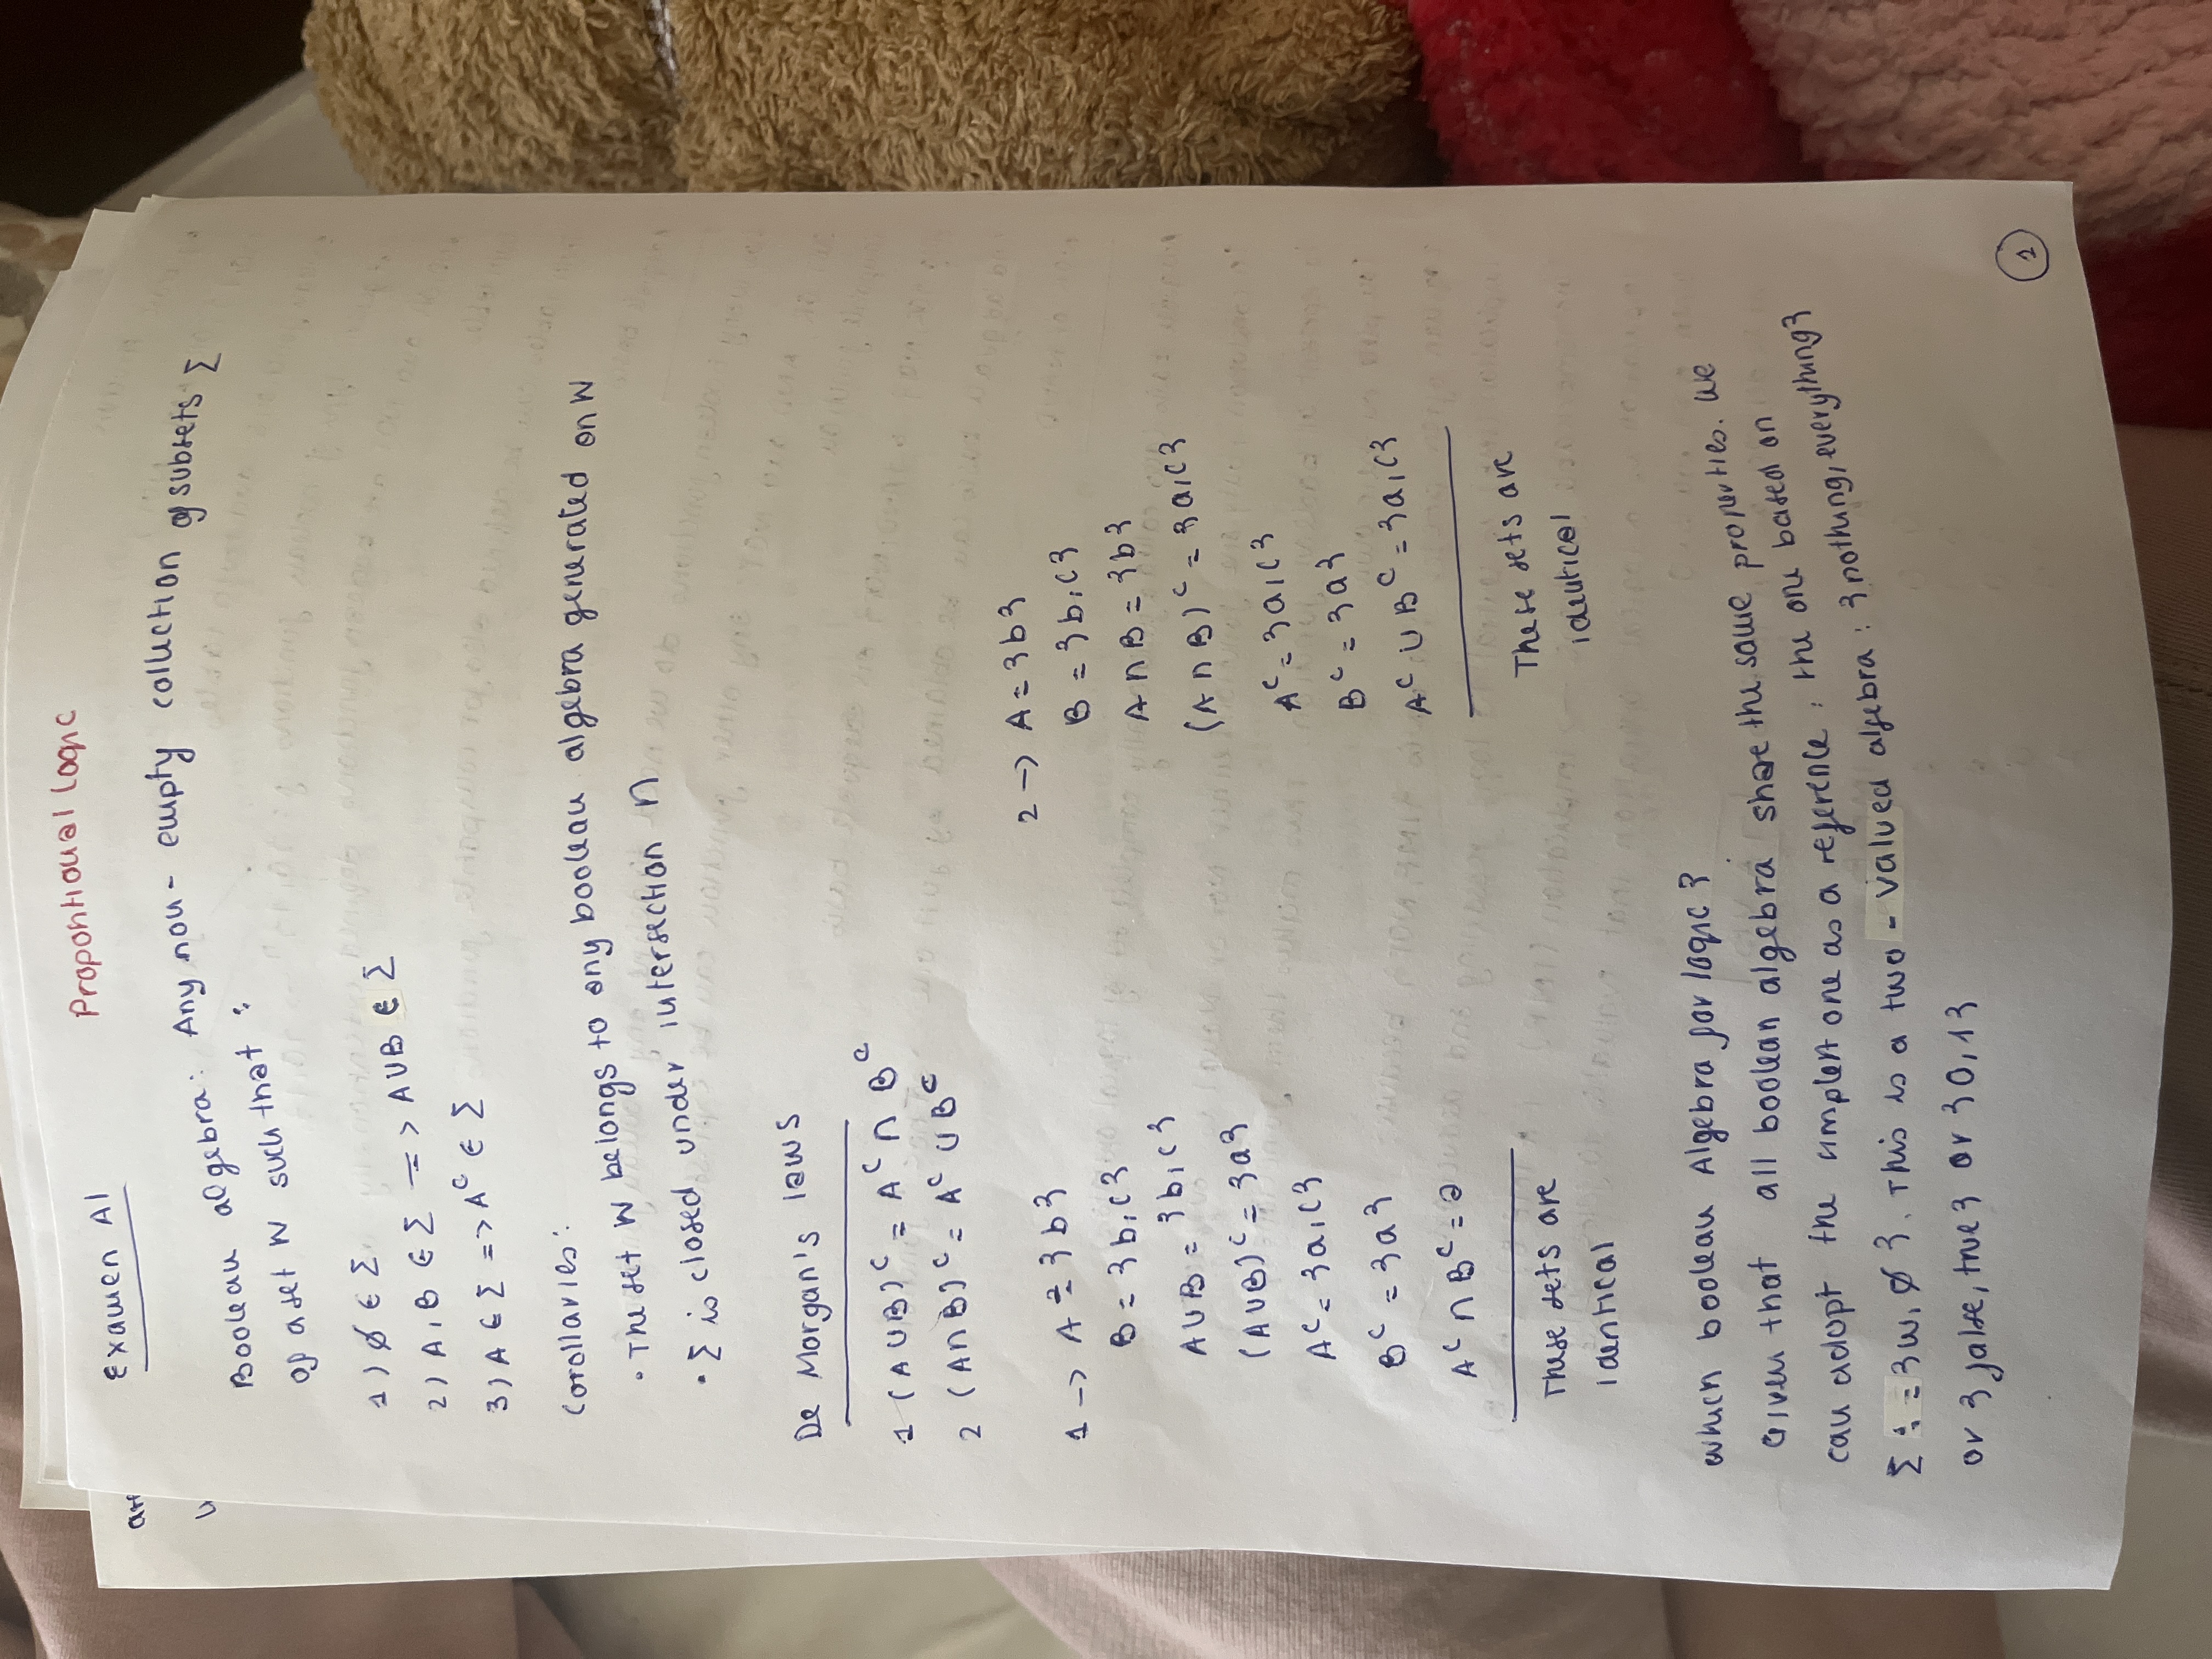 Propontional Logic
Examen AI
Boolean algebra: Any non-empty collection of subsets Σ
of a set W such that :
1) ∅ ∈ Σ
2) A, B ∈ Σ => A∪B ∈ Σ
3) A ∈ Σ => Aᶜ ∈ Σ
Corollaries:
• The set W belongs to any boolean algebra generated on W
• Σ is closed under intersection ∩
De Morgan's laws
1 (A∪B)ᶜ = Aᶜ ∩ Bᶜ
2 (A∩B)ᶜ = Aᶜ ∪ Bᶜ
1 -> A = {b}
B = {b,c}
A∪B = {b,c}
(A∪B)ᶜ = {a}
Aᶜ = {a,c}
Bᶜ = {a}
Aᶜ ∩ Bᶜ = a
These sets are
identical
2 -> A = {b}
B = {b,c}
A ∩ B = {b}
(A ∩ B)ᶜ = {a,c}
Aᶜ = {a,c}
Bᶜ = {a}
Aᶜ ∪ Bᶜ = {a,c}
These sets are
identical
Which boolean Algebra for logic?
Given that all boolean algebra share the same properties. We
can adopt the simplest one as a reference : the one based on
Σ := {W, ∅}. This is a two-valued algebra : {nothing, everything}
or {false, true} or {0,1}
1
are